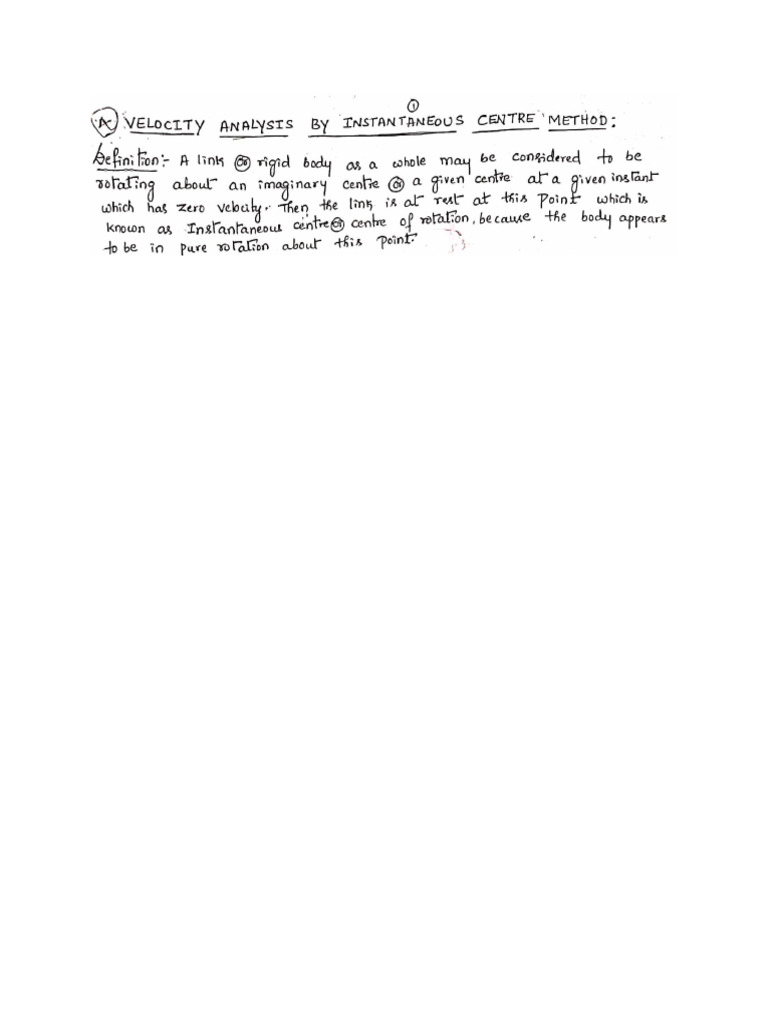 ①
Ⓐ VELOCITY ANALYSIS BY INSTANTANEOUS CENTRE METHOD:
Definition:- A link (or) rigid body as a whole may be considered to be
rotating about an imaginary centre (or) a given centre at a given instant
which has zero velocity. Then the link is at rest at this Point which is
known as Instantaneous centre (or) centre of rotation, because the body appears
to be in pure rotation about this point.